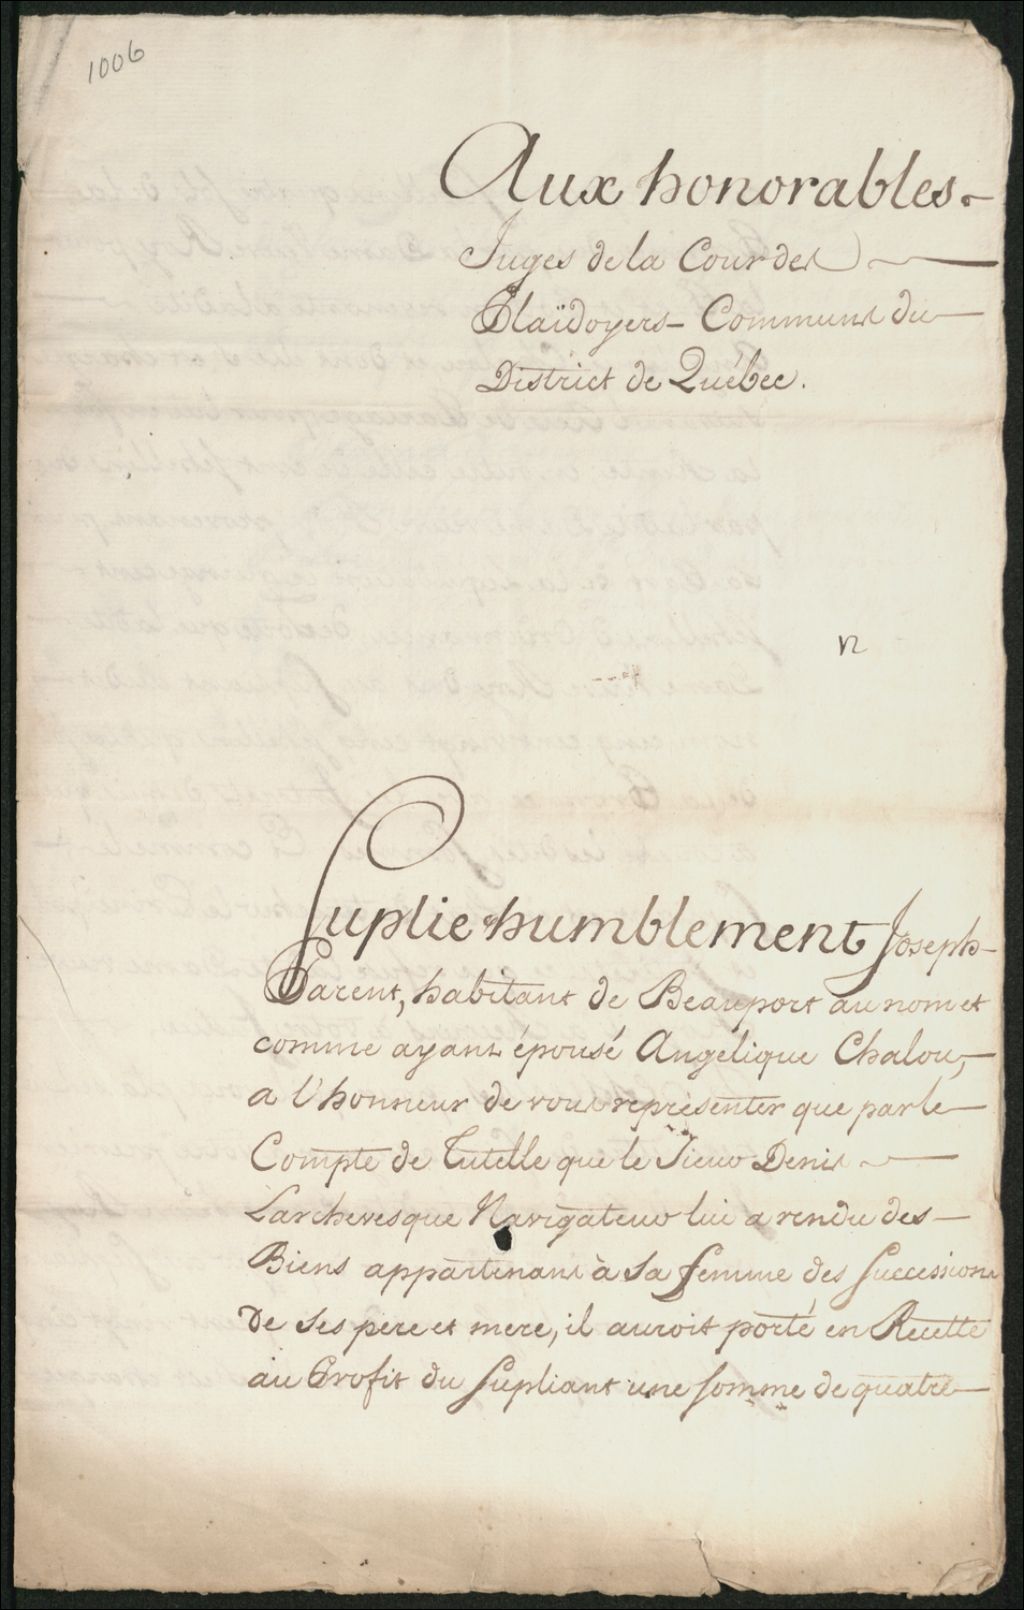 1006
Aux honorables
Juges de la Cour des
Plaïdoyers Communs du
District de Québec.
n
Suplie humblement Joseph
Parent, habitant de Beauport au nom et
comme ayant épousé Angélique Chalou,
a l'honneur de vous representer que par le
Compte de Tutelle que le Sieur Denis
Larchevesque Navigateur lui a rendu des
Biens appartenant à sa femme des Successions
de ses pere et mere, il auroit porté en Recette
au Profit du Supliant une somme de quatre